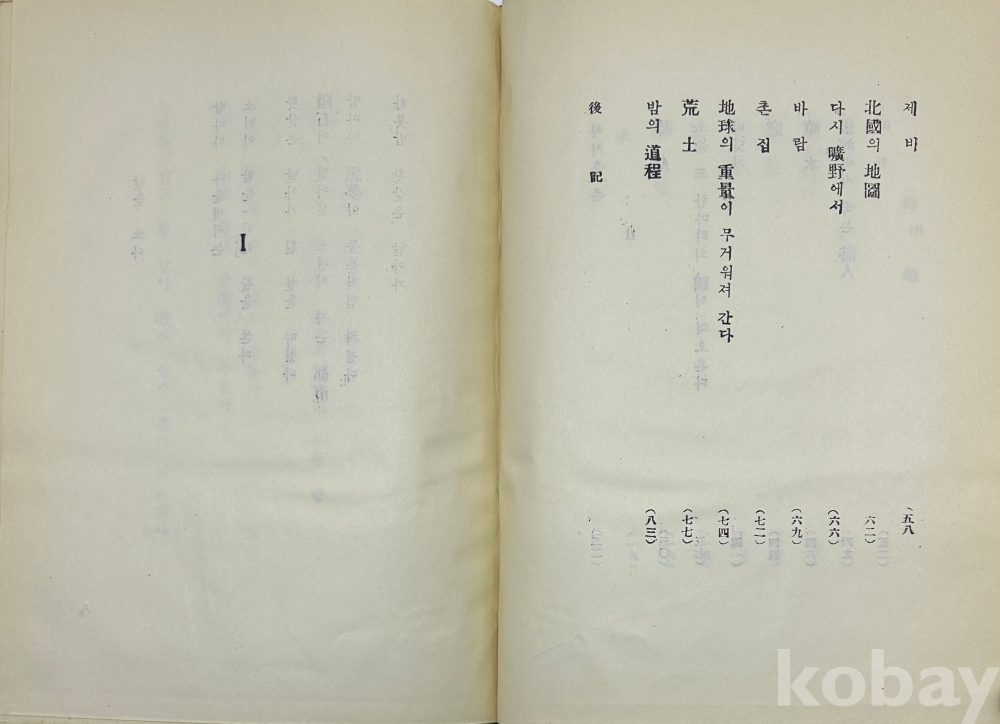 제비 (五八
北國의 地圖 六二)
다시 曠野에서 (六六)
바람 (六九)
촌집 (七二)
地球의 重量이 무거워져 간다 (七四)
荒土 (七七)
밤의 道程 (八三)
後記
I
kobay